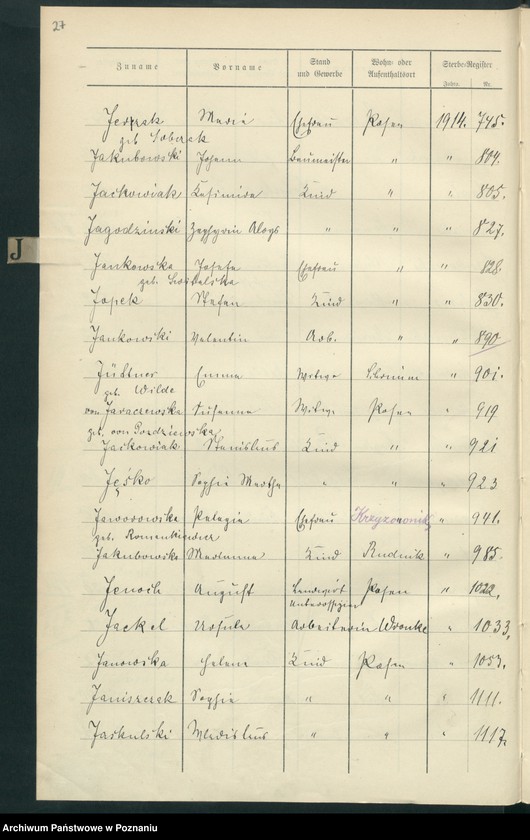 27
Zuname Vorname Stand und Gewerbe Wohn- oder Aufenthaltsort Sterbe-Register
Jahre. Nr.
J
Maria Ehefrau Posen 1914. 745.
geb.
Jakubowski Johann Baumeister " " 804.
Jackowiak Kasimira Kind " " 805.
Jagodzinski Zephyrin Aloys " " " 827.
Jankowska Josefa Ehefrau " " 828.
geb.
Jopek Stefan Kind " " 830.
Jankowski Valentin Arb. " " 890
Jüttner Emma Witwe " 901.
geb. Wilde
von Jaraczewska Susanna Witwe Posen " 919
geb. von
Jackowiak Stanislaus Kind " " 921
Jeśko Sophie Martha " " " 923
Jaworowska Pelagia Ehefrau " 941.
geb. Romenkiewicz
Jakubowska Marianna Kind Rudnik " 985.
Jenoch August Landwirt Posen " 1022.
Jackel Ursula Arbeiterin Wronke " 1033,
Janowska Helene Kind Posen " 1053.
Janiszczak Sophie " " " 1111.
Jaskulski Wladislaus " " " 1117.
Archiwum Państwowe w Poznaniu